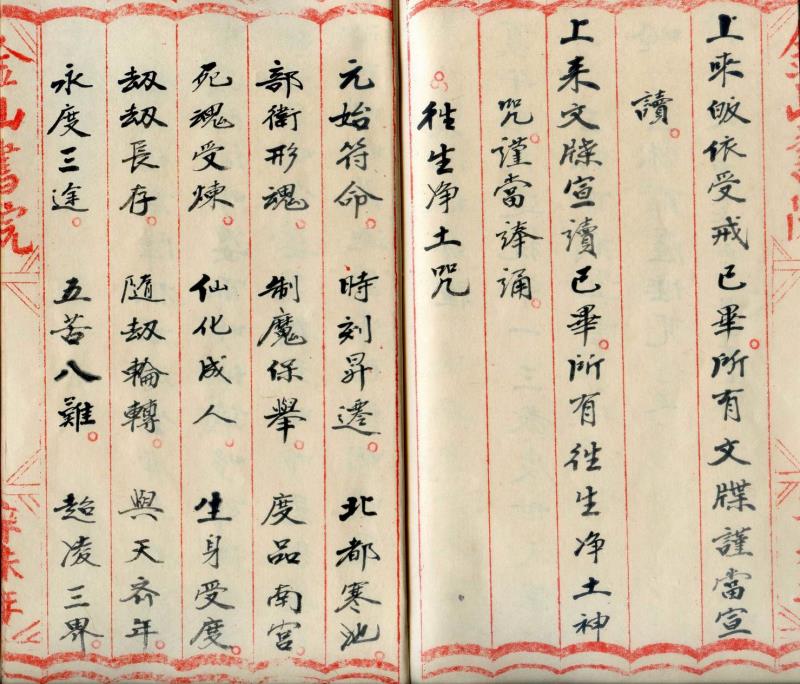 上來皈依受戒已畢。所有文牒謹當宣
讀。
上来文牒宣讀已畢。所有徃生净土神
咒。謹當諷誦。
徃生净土咒
元始符命。時刻昇遷。北都寒池。
部衛形魂。制魔保舉。度品南宫。
死魂受煉。仙化成人。生身受度。
刼刼長存。隨刼輪轉。與天齐年。
永度三途。五苦八難。超凌三界。
金山書院